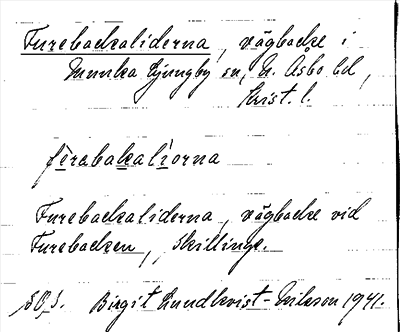 Furebackaliderna, vägbacke i
Munka Ljungby sn, N. Åsbo hd,
Krist. l.
firabakaliorna
Furebackaliderna, vägbacke vid
Furebacken, Skillinge.
Birgit Lundkvist-Nilsson 1941.